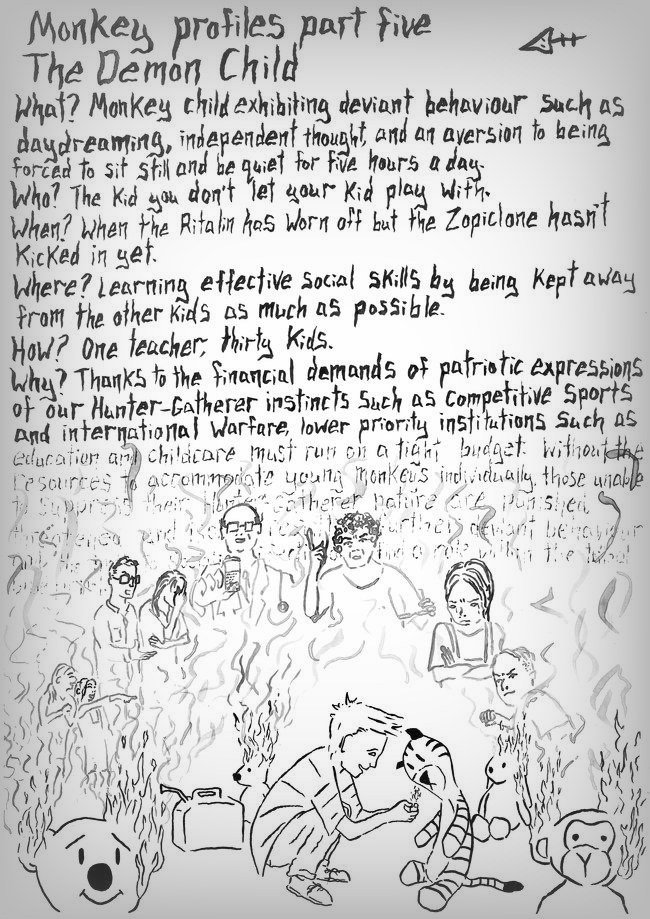 Monkey profiles part five
The Demon Child
What? Monkey child exhibiting deviant behaviour such as
daydreaming, independent thought, and an aversion to being
forced to sit still and be quiet for five hours a day.
Who? The Kid you don't let your Kid play with.
When? When the Ritalin has worn off but the Zopiclone hasn't
Kicked in yet.
Where? Learning effective social skills by being kept away
from the other kids as much as possible.
How? One teacher, thirty Kids.
Why? Thanks to the financial demands of patriotic expressions
of our Hunter-Gatherer instincts such as competitive sports
and international warfare, lower priority institutions such as
education and childcare must run on a tight budget. Without the
resources to accommodate young monkeys individually, those unable
to suppress their Hunter-Gatherer nature are punished,
threatened and further deviant behaviour
and a role within the